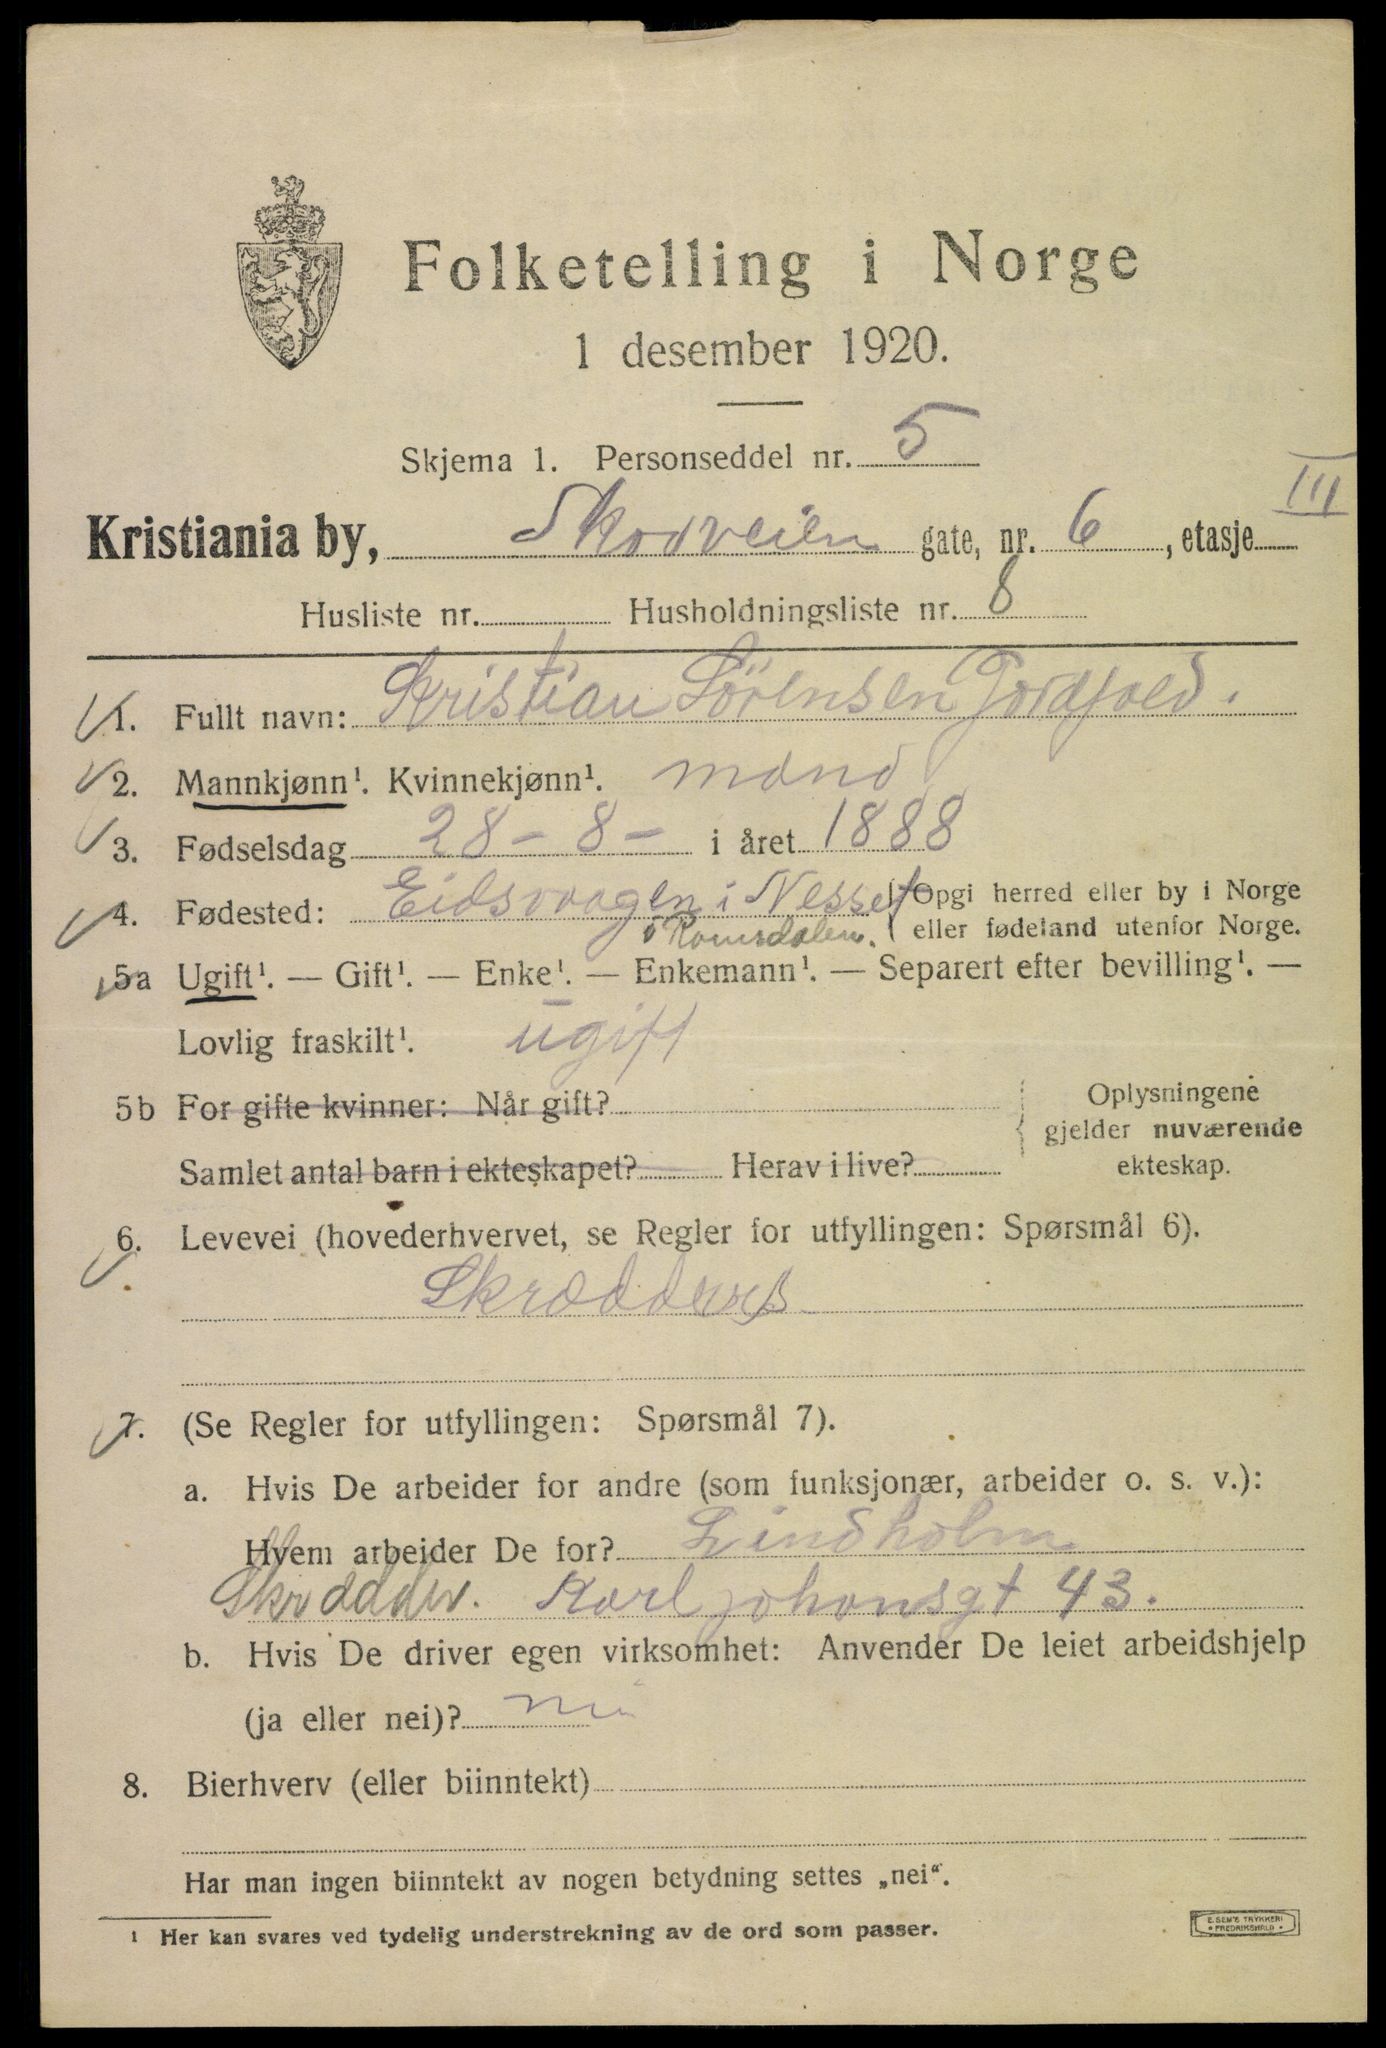 Folketelling i Norge
1 desember 1920.
Skjema 1. Personseddel nr. 5
Kristiania by, Skovveien gate, nr. 6, etasje III
Husliste nr. Husholdningsliste nr. 8
1. Fullt navn: Kristian Sörensen
2. Mannkjønn¹. Kvinnekjønn¹. mand
3. Fødselsdag 28 - 8 - i året 1888
4. Fødested: Eidsvaagen i Nesset (Opgi herred eller by i Norge
i Romsdalen. eller fødeland utenfor Norge.
5a Ugift¹. — Gift¹. — Enke¹. — Enkemann¹. — Separert efter bevilling¹. —
Lovlig fraskilt¹. ugift
5b For gifte kvinner: Når gift? Oplysningene
gjelder nuværende
Samlet antal barn i ekteskapet? Herav i live? ekteskap.
6. Levevei (hovederhvervet, se Regler for utfyllingen: Spørsmål 6).
7. (Se Regler for utfyllingen: Spørsmål 7).
a. Hvis De arbeider for andre (som funksjonær, arbeider o. s. v.):
Hvem arbeider De for? Lindholm
Skrædder. Karl johansgt 43.
b. Hvis De driver egen virksomhet: Anvender De leiet arbeidshjelp
(ja eller nei)? nei
8. Bierhverv (eller biinntekt)
Har man ingen biinntekt av nogen betydning settes „nei“.
¹ Her kan svares ved tydelig understrekning av de ord som passer.
E. SEM'S TRYKKERI
• FREDRIKSHALD •